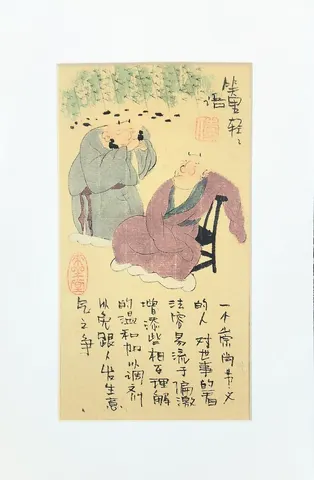 轻
语
一个崇尚
的人 对世事的看
法容易流于偏激
增添些相互理解
的温和加以调剂
以免跟人发生意
气之争